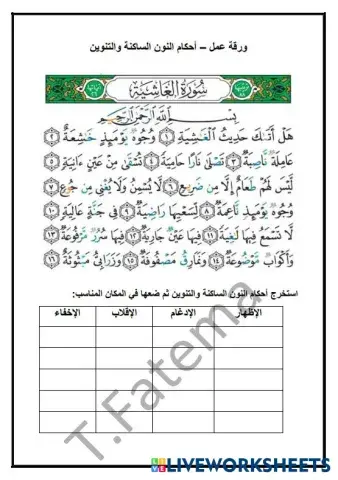 ورقة عمل – أحكام النون الساكنة والتنوين
سُورَةُ الغَاشِيَةِ
بِسْمِ اللَّهِ الرَّحْمَٰنِ الرَّحِيمِ
هَلْ أَتَىٰكَ حَدِيثُ الْغَٰشِيَةِ ١ وُجُوهٌ يَوْمَئِذٍ خَٰشِعَةٌ ٢
عَامِلَةٌ نَّاصِبَةٌ ٣ تَصْلَىٰ نَارًا حَامِيَةً ٤ تُسْقَىٰ مِنْ عَيْنٍ ءَانِيَةٍ ٥
لَّيْسَ لَهُمْ طَعَامٌ إِلَّا مِن ضَرِيعٍ ٦ لَّا يُسْمِنُ وَلَا يُغْنِي مِن جُوعٍ ٧
وُجُوهٌ يَوْمَئِذٍ نَّاعِمَةٌ ٨ لِّسَعْيِهَا رَاضِيَةٌ ٩ فِي جَنَّةٍ عَالِيَةٍ ١٠
لَّا تَسْمَعُ فِيهَا لَٰغِيَةً ١١ فِيهَا عَيْنٌ جَارِيَةٌ ١٢ فِيهَا سُرُرٌ مَّرْفُوعَةٌ ١٣
وَأَكْوَابٌ مَّوْضُوعَةٌ ١٤ وَنَمَارِقُ مَصْفُوفَةٌ ١٥ وَزَرَابِيُّ مَبْثُوثَةٌ ١٦
استخرج أحكام النون الساكنة والتنوين ثم ضعها في المكان المناسب:
الإظهار الإدغام الإقلاب الإخفاء
T.Fatema
LIVEWORKSHEETS